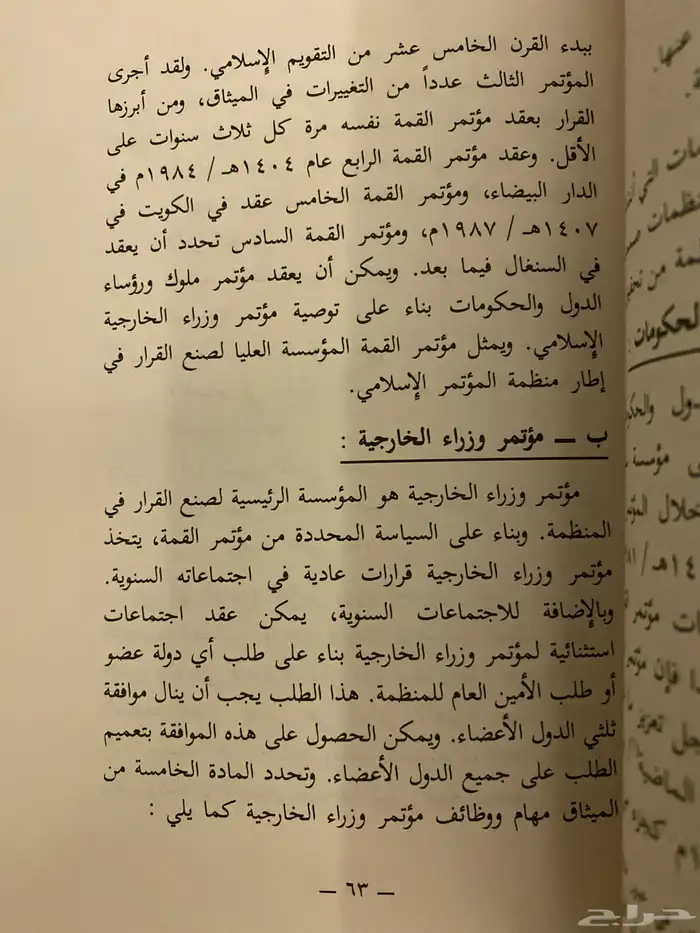 ببدء القرن الخامس عشر من التقويم الإسلامي. ولقد أجرى
المؤتمر الثالث عدداً من التغييرات في الميثاق، ومن أبرزها
القرار بعقد مؤتمر القمة نفسه مرة كل ثلاث سنوات على
الأقل. وعقد مؤتمر القمة الرابع عام ١٤٠٤هـ / ١٩٨٤م في
الدار البيضاء، ومؤتمر القمة الخامس عقد في الكويت في
١٤٠٧هـ / ١٩٨٧م، ومؤتمر القمة السادس تحدد أن يعقد
في السنغال فيما بعد. ويمكن أن يعقد مؤتمر ملوك ورؤساء
الدول والحكومات بناء على توصية مؤتمر وزراء الخارجية
الإسلامي. ويمثل مؤتمر القمة المؤسسة العليا لصنع القرار في
إطار منظمة المؤتمر الإسلامي.
ب ـ مؤتمر وزراء الخارجية :
مؤتمر وزراء الخارجية هو المؤسسة الرئيسية لصنع القرار في
المنظمة. وبناء على السياسة المحددة من مؤتمر القمة، يتخذ
مؤتمر وزراء الخارجية قرارات عادية في اجتماعاته السنوية.
وبالإضافة للاجتماعات السنوية، يمكن عقد اجتماعات
استثنائية لمؤتمر وزراء الخارجية بناء على طلب أي دولة عضو
أو طلب الأمين العام للمنظمة. هذا الطلب يجب أن ينال موافقة
ثلثي الدول الأعضاء. ويمكن الحصول على هذه الموافقة بتعميم
الطلب على جميع الدول الأعضاء. وتحدد المادة الخامسة من
الميثاق مهام ووظائف مؤتمر وزراء الخارجية كما يلي :
ـ ٦٣ ـ
حراج